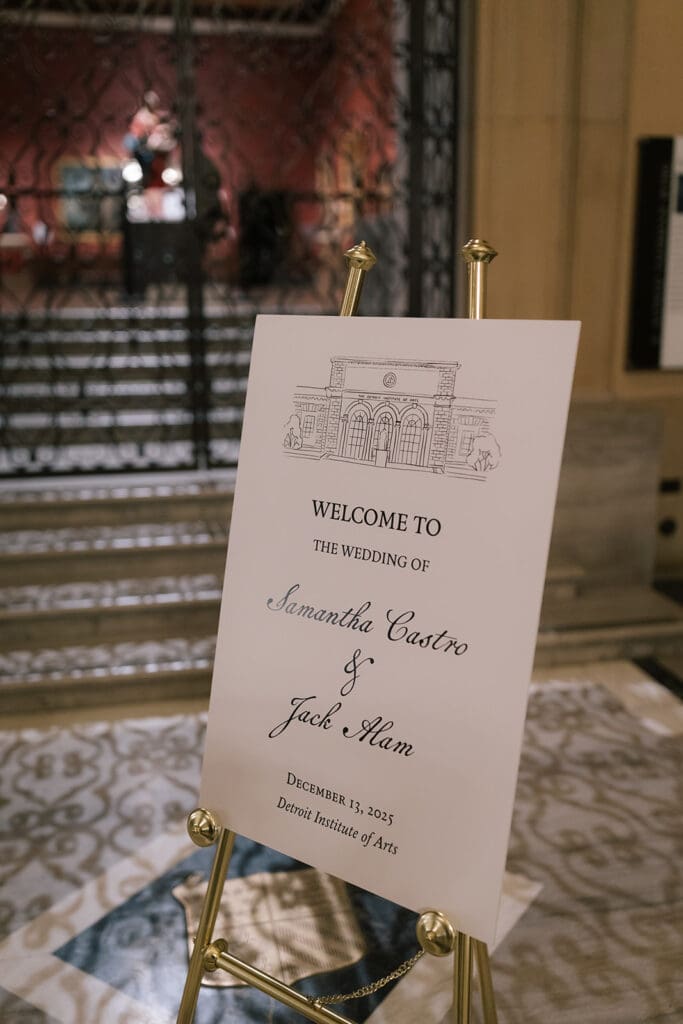 THE DETROIT INSTITUTE OF ARTS
WELCOME TO
THE WEDDING OF
Samantha Castro
&
Jack Alam
December 13, 2025
Detroit Institute of Arts